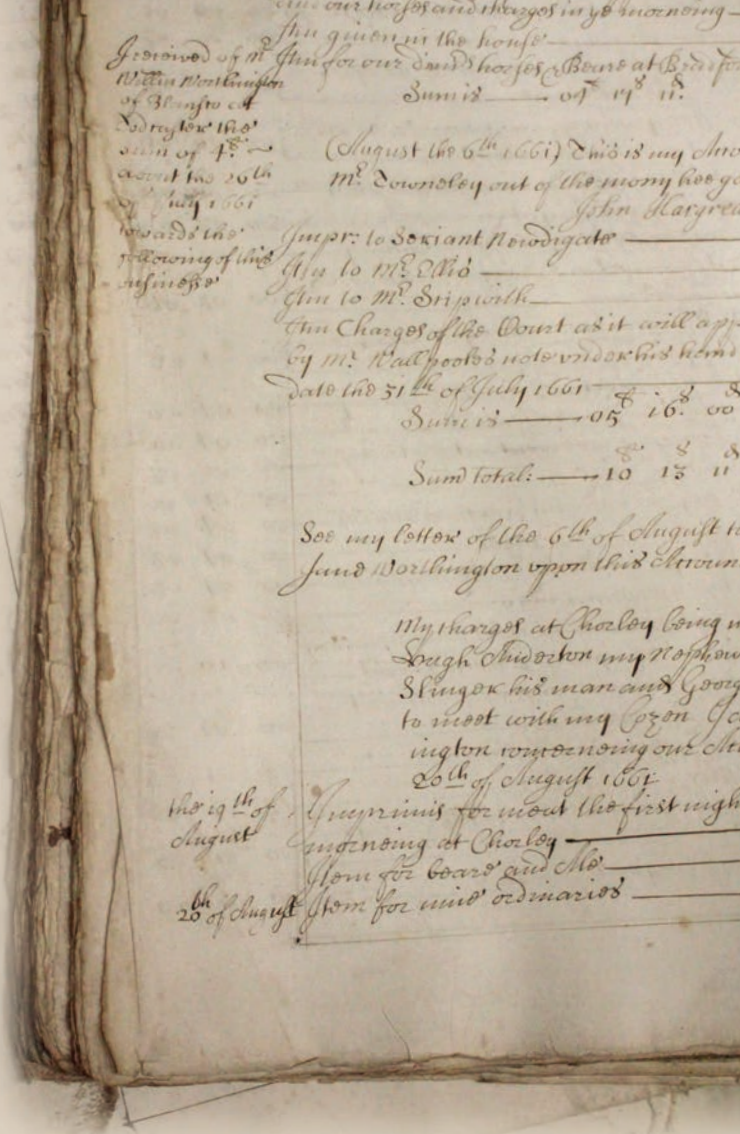 and our horses and charges in ye morneing
Itm given in the house
Itm for our and horses Beare at
Sum is 04 11
I received of mr
Willm Worthington
of
the
sum of 4li
about the 20th
of July 1661
towards the
following of this
businesse
(August the 6th 1661) This is my Acco
mr. Towneley out of the mony hee
John Hargrea
Impr: to Seriant Newdigate
Itm to Mr. Ellis
Itm to Mr. Skipwith
Itm Charges of the Court as it will app
by Mr. Wallpooles note vnder his hand
date the 31th of July 1661
Sum is 05 16s 00d
Sum total: 10 13 11
See my letter of the 6th of August to
Jane Worthington vpon this Accoun
My charges at Chorley being
Hugh Anderton my Nephew
Slinger his man and Georg
to meet with my Cozen
ington concerneing our
20th of August 1661
the 19th of
August
Imprimis for meat the first nigh
morneing at Chorley
Item for beare and Ale
20th of August Item for mine ordinaries